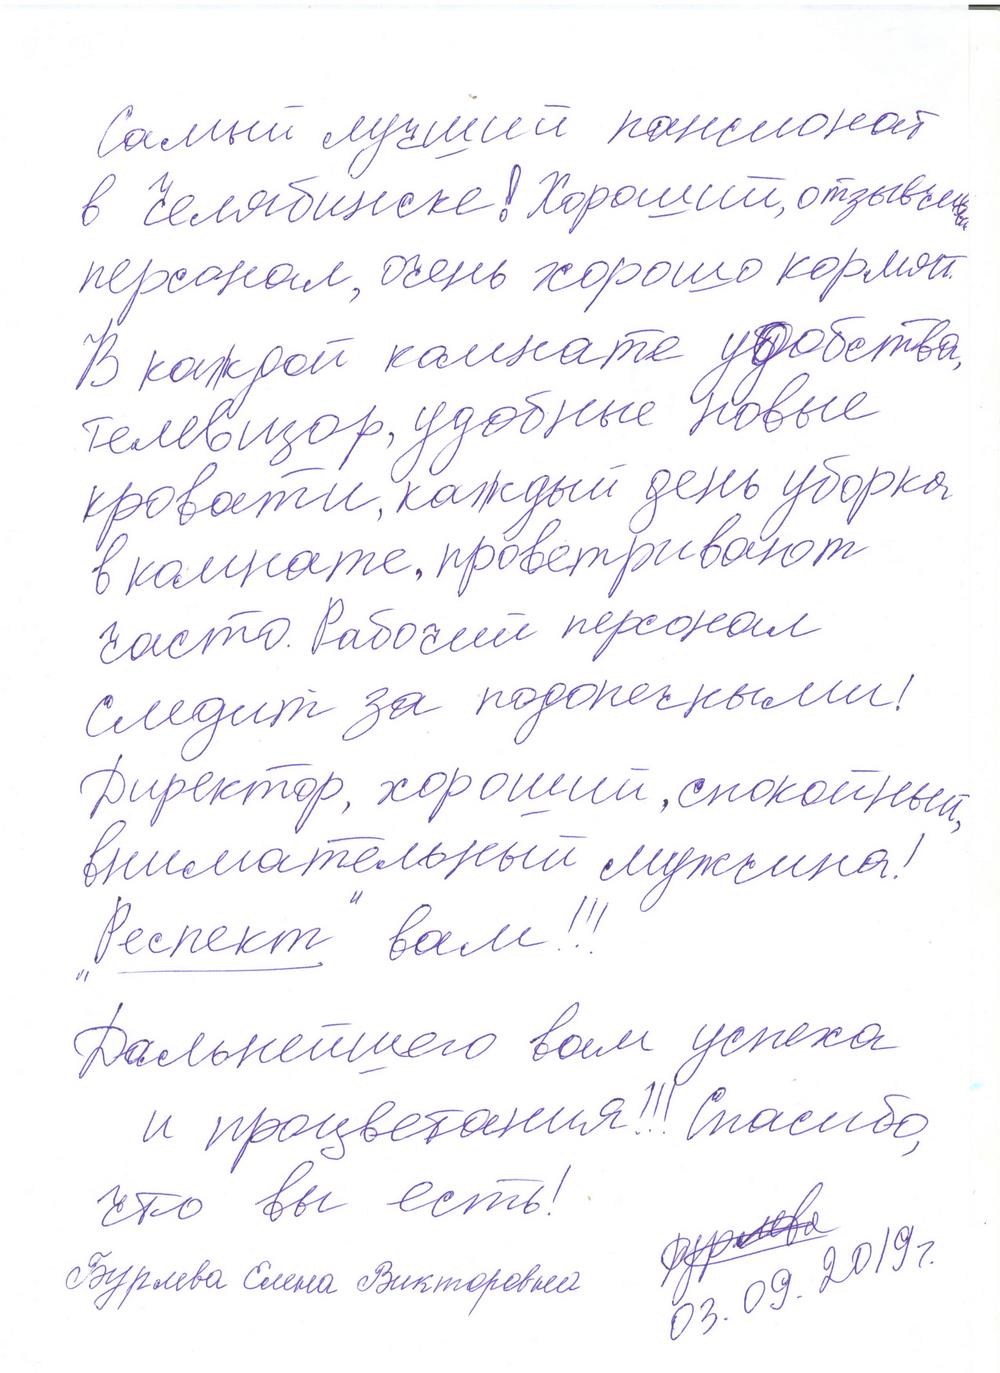 Самый лучший пансионат
в Челябинске! Хороший, отзывчивый
персонал, очень хорошо кормят.
В каждой комнате удобства,
телевизор, удобные новые
кровати, каждый день уборка
в комнате, проветривают
часто. Рабочий персонал
следит за подопечными!
Директор, хороший, спокойный,
внимательный мужчина!
"Респект" вам!!!
Дальнейшего вам успеха
и процветания!!! Спасибо,
что вы есть!
Бурлева Елена Викторовна
Бурлева
03.09.2019г.